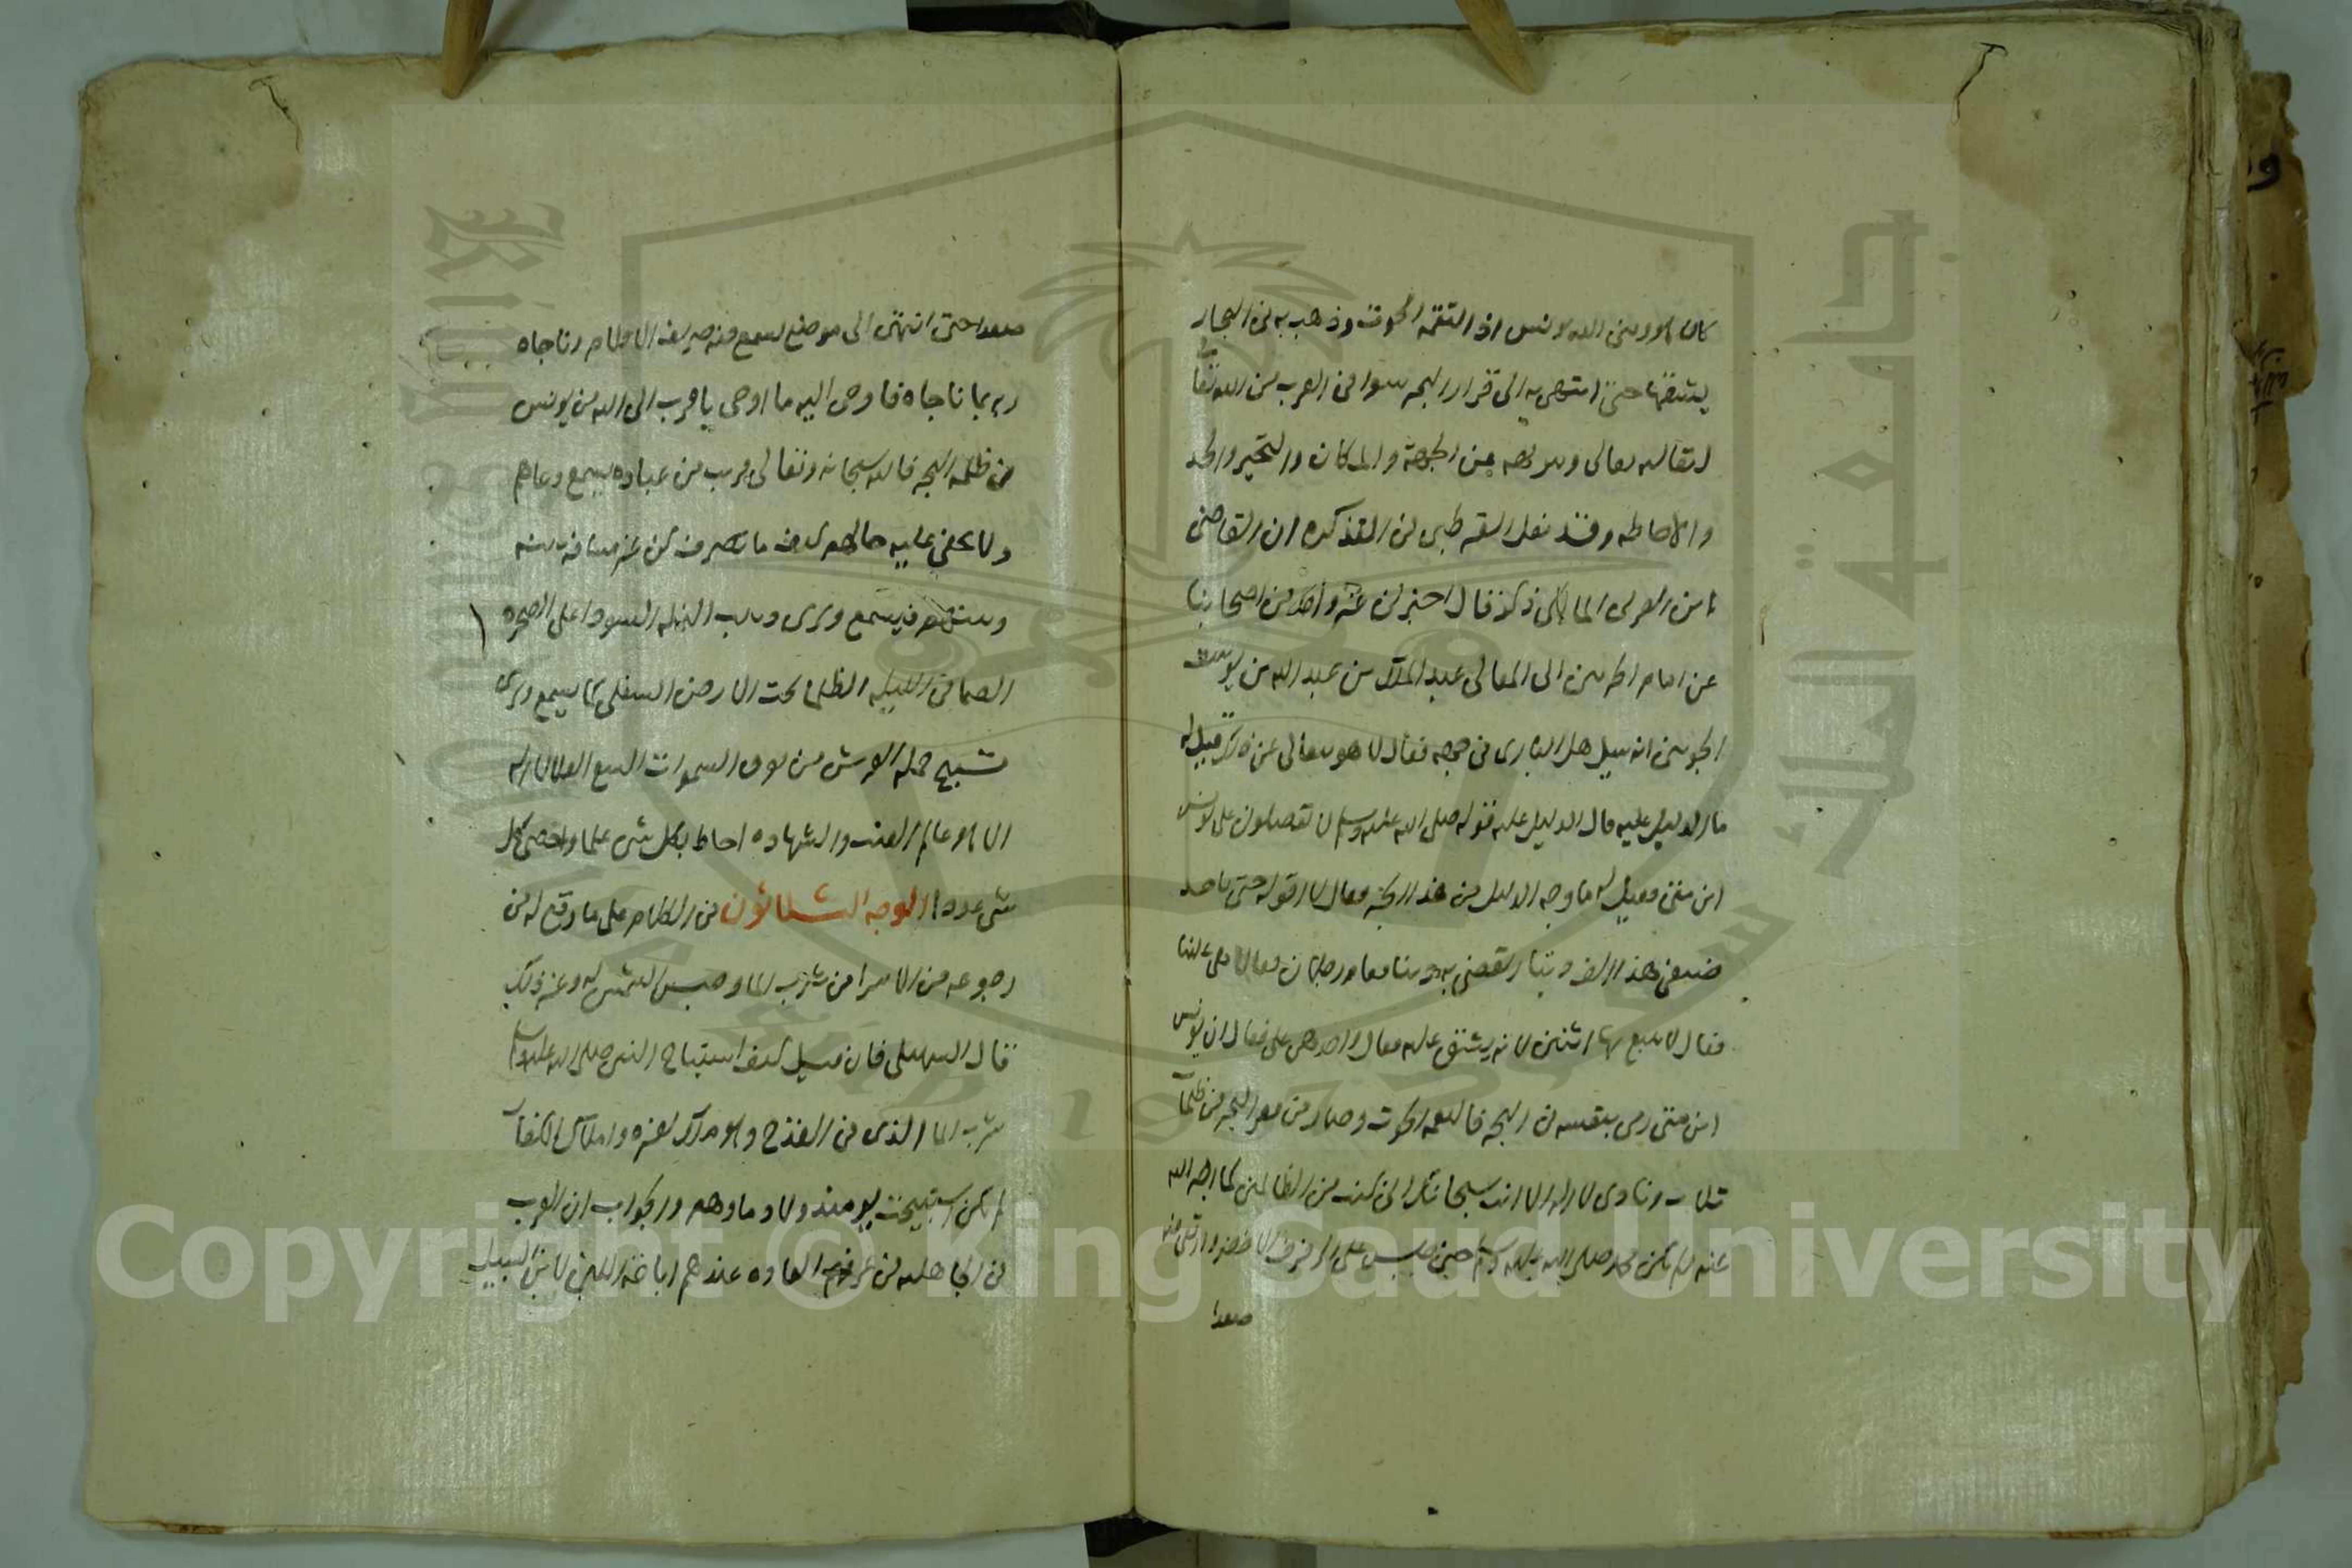 كان هو ونبي الله يونس اذ التقمه الحوت وذهب به في البحار
يشقها حتى انتهى به الى قرار البحر سوا في القرب من الله تعا
لتعاليه تعالى وتنزيهه عن الجهة والمكان والتحيز والحد
والاحاطه وقد نقل القرطبي في التذكره ان القاضي
ابن العربي المالكي ذكر فقال اخبرني غير واحد من اصحابنا
عن امام الحرمين ابي المعالي عبد الملك بن عبد الله بن يوسف
الجويني انه سيل هل الباري في جهه فقال لا هو يتعالى عن ذلك قيل له
ما الدليل عليه قال الدليل عليه قوله صلى الله عليه وسلم لا تفضلوني على يونس
ابن متى فقيل له ما وجه الدليل من هذا الخبر فقال لا اقوله حتى ياخذ
ضيفي هذا الف دينار يقضي بها دينا فقام رجلان فقالا هي علينا
فقال لا يتبع بها اثنين لانه يشق عليه فقال واحد هي علي فقال ان يونس
ابن متى رمى بنفسه في البحر فالتقمه الحوت وصار في قعر البحر في ظلمات
ثلاث ونادى لا اله الا انت سبحانك اني كنت من الظالمين كما اخبر الله
عنه ولم يكن محمد صلى الله عليه وسلم حين جلس على الرفرف الاخضر وارتقى به
صعدا
صعدا حتى انتهى الى موضع يسمع فيه صريف الاقلام وناجاه
ربه بما ناجاه فاوحى اليه ما اوحى باقرب الى الله من يونس
في ظلمه البحر فالله سبحانه وتعالى قريب من عباده يسمع دعاهم
ولا يخفى عليه حالهم كيف ما تصرفت من غير مسافه بينه
وبينهم فيسمع ويرى دبيب النمله السودا على الصخره
الصما في الليله الظلما تحت الارض السفلى كما يسمع ويرى
تسبيح حمله العرش من فوق السموات السبع العلا لا اله
الا هو عالم الغيب والشهاده احاط بكل شي علما واحصى كل
شي عددا الوجه الثلاثون في الكلام على ما وقع له في
رجوعه من الاسرا من شرب الما وحبس الشمس له وغير ذلك
قال السهيلي فان قيل كيف استباح النبي صلى الله عليه وسلم
شرب الما الذي في القدح وهو ملك لغيره واملاك الكفار
لم تكن استبيحت يومئذ ولا دماوهم والجواب ان العرب
في الجاهليه في عرف العاده عندهم اباحة اللبن لابن السبيل
Copyright © King Saud University